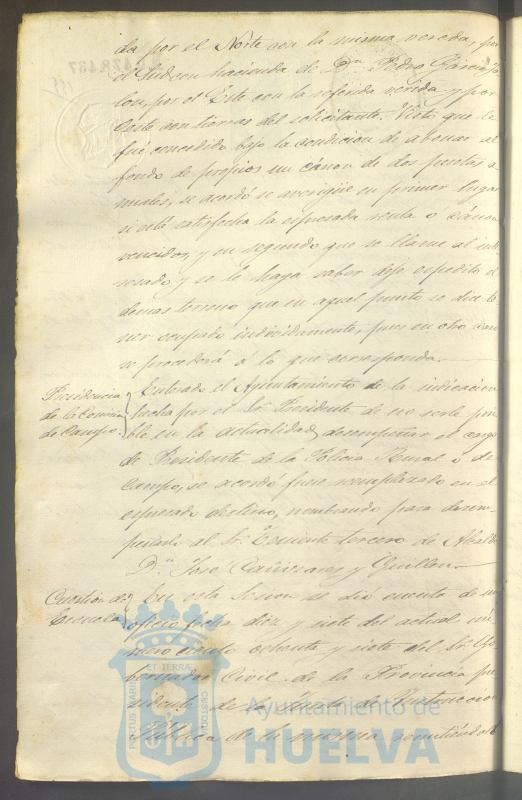 da por el Norte con la misma vereda, por
el Sud con hacienda de Dn. Pedro García Ja
lon, por el Este con la referida vereda y por
Oeste con tierras del solicitante. Visto que le
fué concedido bajo la condicion de abonar al
fondo de propios un cánon de dos pesetas a-
nuales, se acordó se averigüe en primer lugar
si está satisfecha la espresada renta ó cánon
vencidos, y en segundo que se llame al inte-
resado y se le haga saber deje espedito el
demas terreno que en aquel punto se dice te
ner ocupado indevidamente, pues en otro caso
se procederá á lo que corresponda.
Presidencia
de la Comon.
de Campo.
Enterado el Ayuntamiento de la indicacion
hecha por el Sr. Presidente de no serle posi
ble en la actualidad desempeñar el cargo
de Presidente de la Policia Rural ó de
Campo, se acordó fuese reemplazado en el
espresado destino, nombrando para desem-
peñarlo al Sr. Teniente tercero de Alcalde
Dn. José Cañizares y Guillen.
Cuestion de
Escuela
En esta sesion se dio cuenta de un
oficio fecha diez y siete del actual nú-
mero ciento ochenta y siete del Sr. Go
bernador Civil de la Provincia pre
sidente de la Junta de Instruccion
Pública de la misma remitiéndole
PORTUS MARIS
ET TERRAE
CUSTODIA
Ayuntamiento de
HUELVA